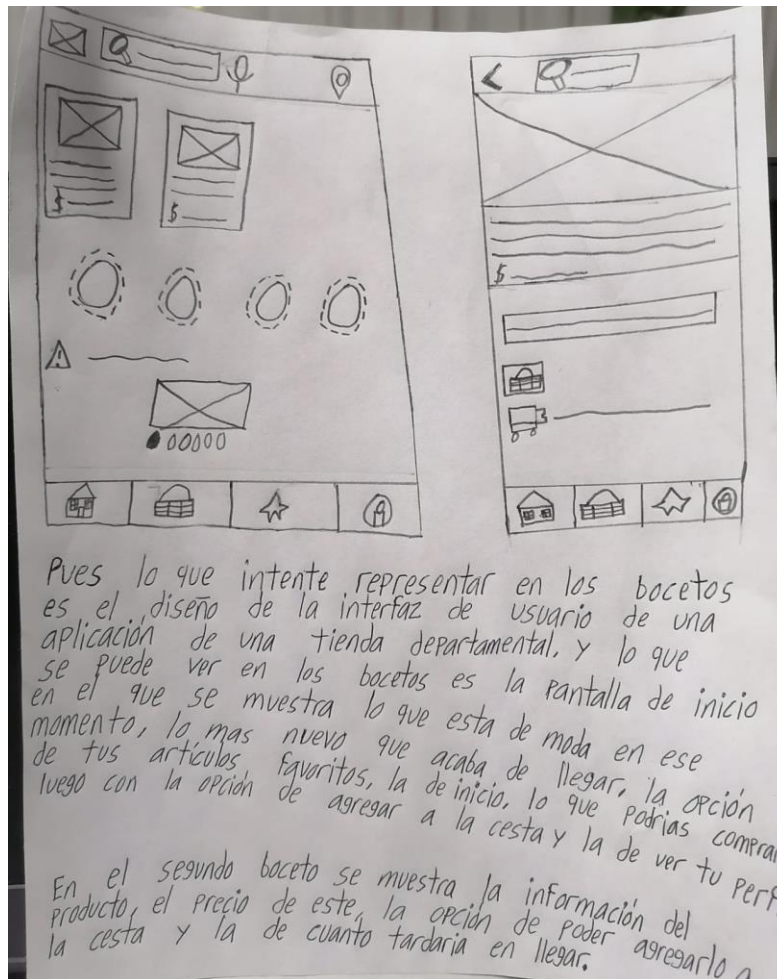 $
$
$
Pues lo que intente representar en los bocetos
es el diseño de la interfaz de usuario de una
aplicación de una tienda departamental, y lo que
se puede ver en los bocetos es la pantalla de inicio
en el que se muestra lo que esta de moda en ese
momento, lo mas nuevo que acaba de llegar, la opción
de tus artículos favoritos, la de inicio, lo que podrias comprar
luego con la opción de agregar a la cesta y la de ver tu perf
En el segundo boceto se muestra la información del
producto, el precio de este, la opción de poder agregarlo a
la cesta y la de cuanto tardaria en llegar.